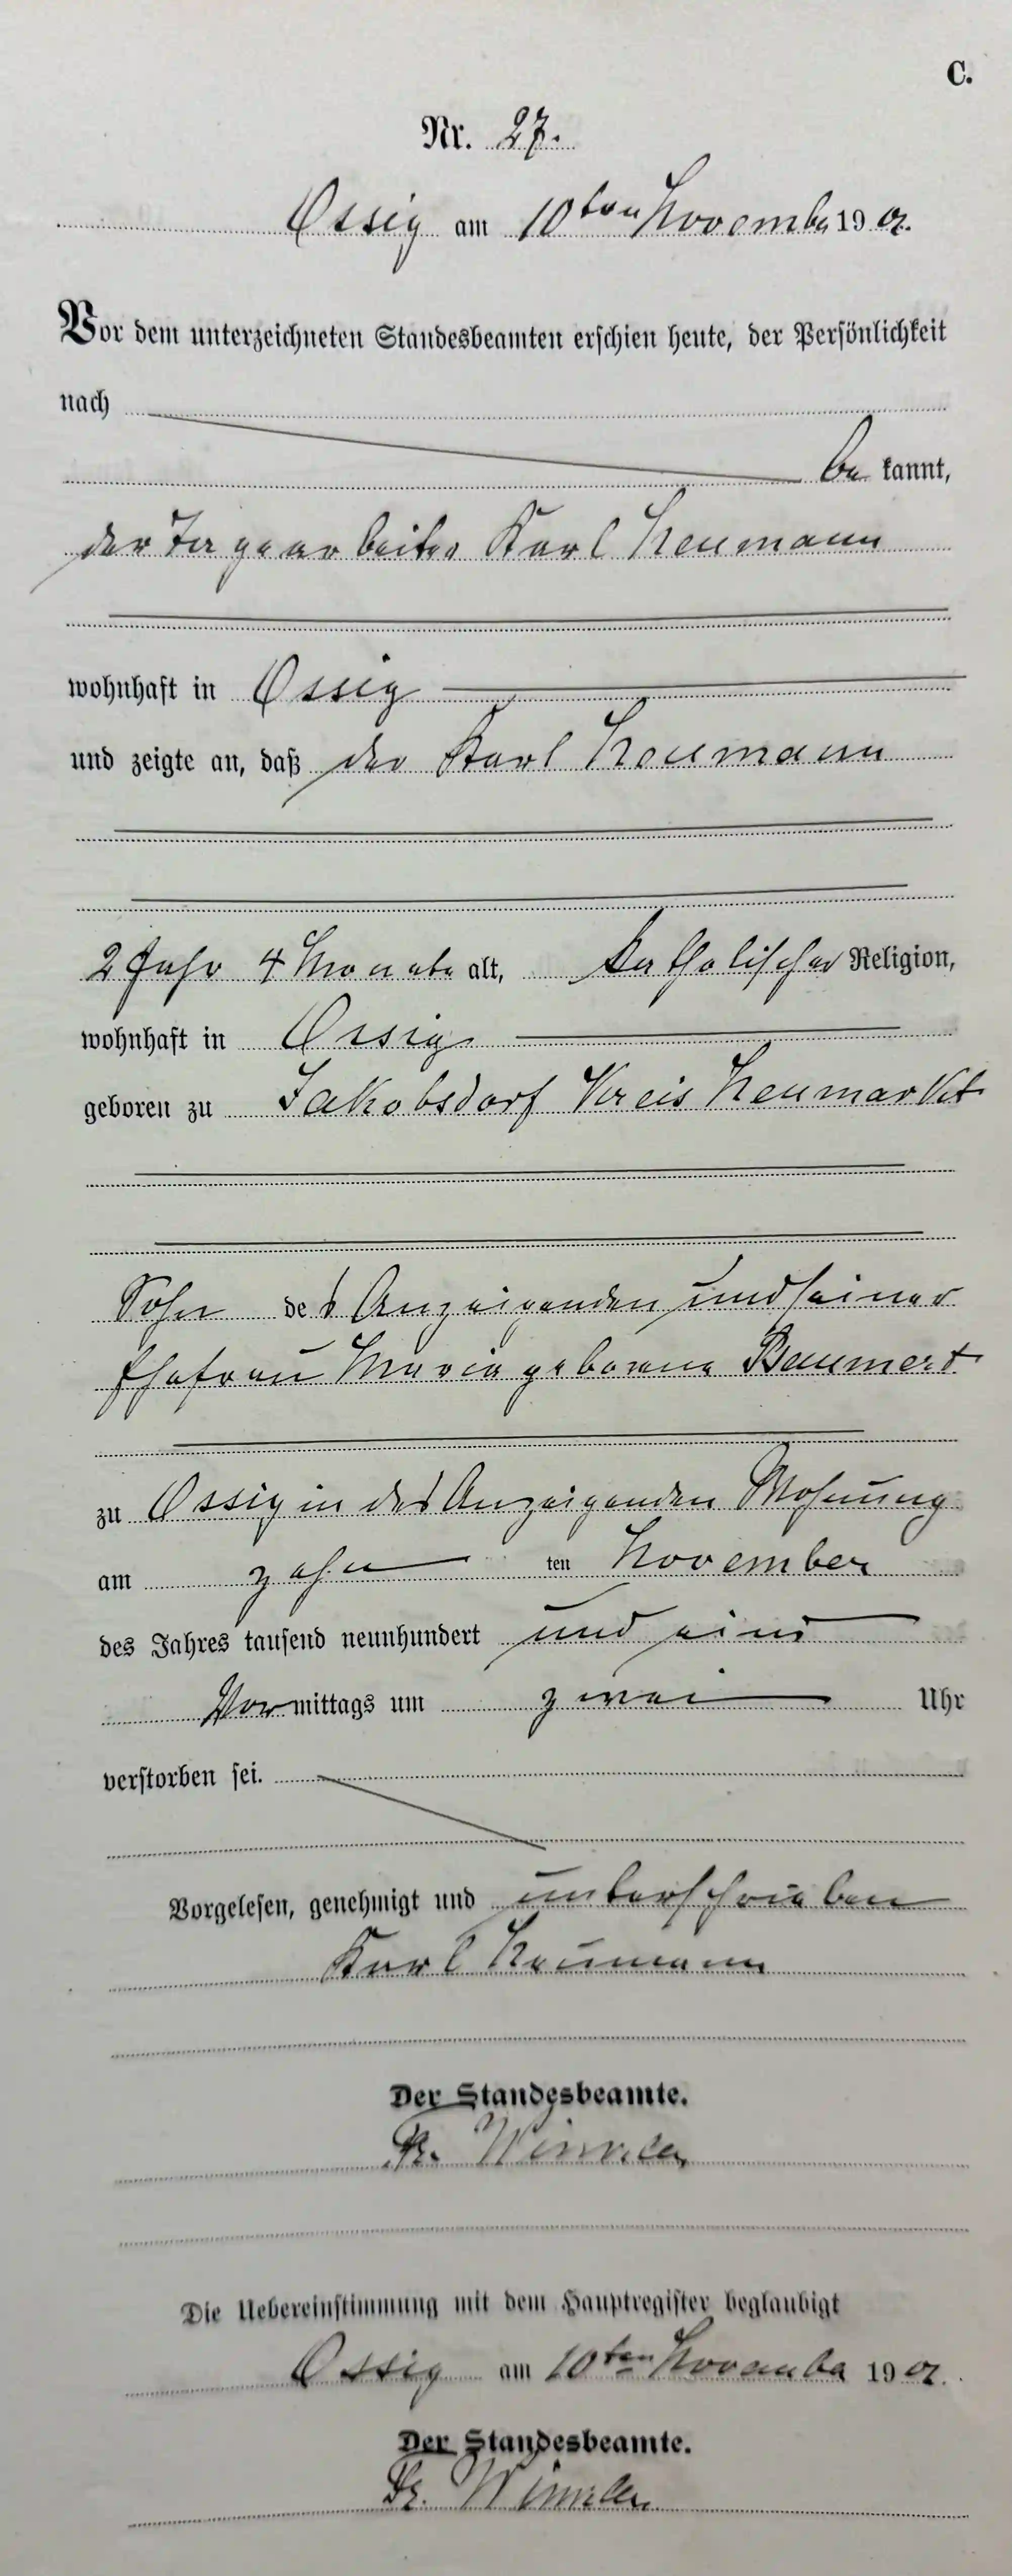 C.
Nr. 27.
Ossig am 10ten November 1901.
Vor dem unterzeichneten Standesbeamten erschien heute, der Persönlichkeit
nach
be kannt,
der Tagearbeiter Karl Neumann
wohnhaft in Ossig
und zeigte an, daß der Karl Neumann
2 Jahr 4 Monate alt, katholischer Religion,
wohnhaft in Ossig
geboren zu Jakobsdorf Kreis Neumarkt
Sohn des Anzeigenden und seiner
Ehefrau Maria geborene Baumert
zu Ossig in des Anzeigenden Wohnung
am zehn ten November
des Jahres tausend neunhundert und eins
Vor mittags um zwei Uhr
verstorben sei.
Vorgelesen, genehmigt und unterschrieben
Karl Neumann
Der Standesbeamte.
Die Uebereinstimmung mit dem Hauptregister beglaubigt
Ossig am 10ten November 1901.
Der Standesbeamte.